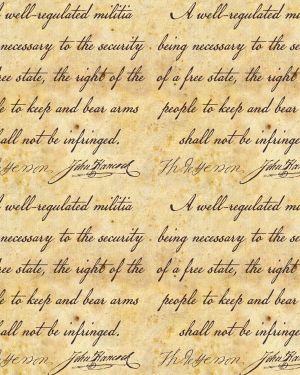 A well-regulated militia A well-regulated m
necessary to the security being necessary to the s
ree state, the right of the of a free state, the righ
le to keep and bear arms people to keep and bear
all not be infringed. shall not be infringe
Jefferson John Hancock Th Jefferson John
well-regulated militia A well-regulated m
necessary to the security being necessary to the s
ree state, the right of the of a free state, the righ
le to keep and bear arms people to keep and bear
hall not be infringed. shall not be infringe
Jefferson John Hancock Th Jefferson John